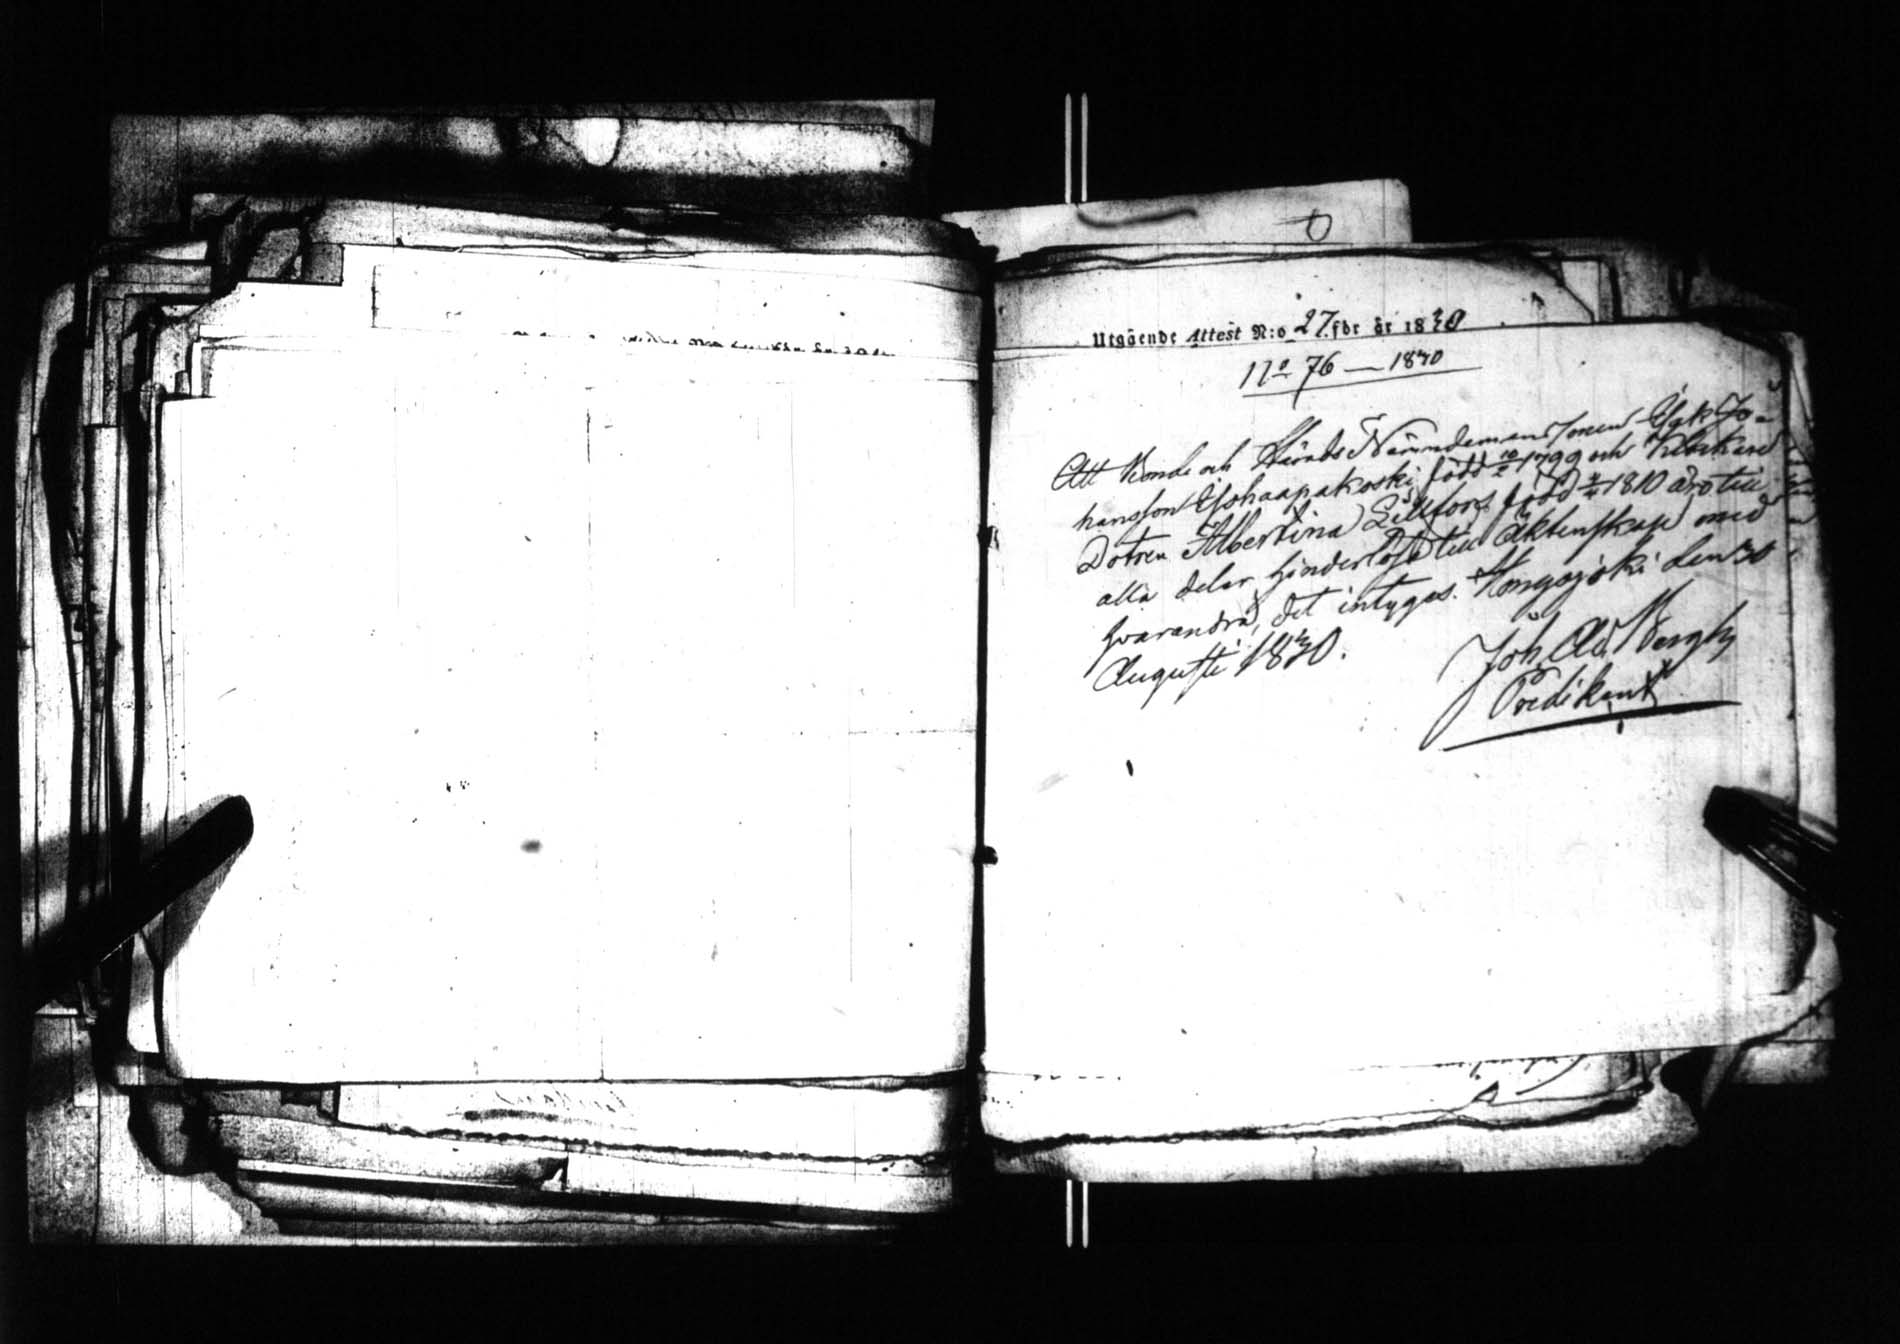 Utgående Attest N:o 27 för år 1830
No 76 — 1830
Att Bonde och Härads Nämndemans Sonen Jo-
hansson född 10 1799 och Klockare
Dotren Albertina Lillfors född 1810 äro till
alla delar hinderlösa till Äktenskap med
hvarandra, det intygas. den 30
Augusti 1830.
Joh. Ad. Bergh
Predikant